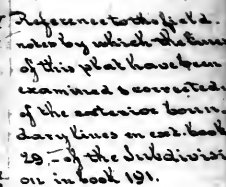 Reference to the field.
notes by which the
of this plat have been
examined & corrected
of the exterior boun-
dary lines in ext. book
29.- of the Subdivisi
on in book 191.